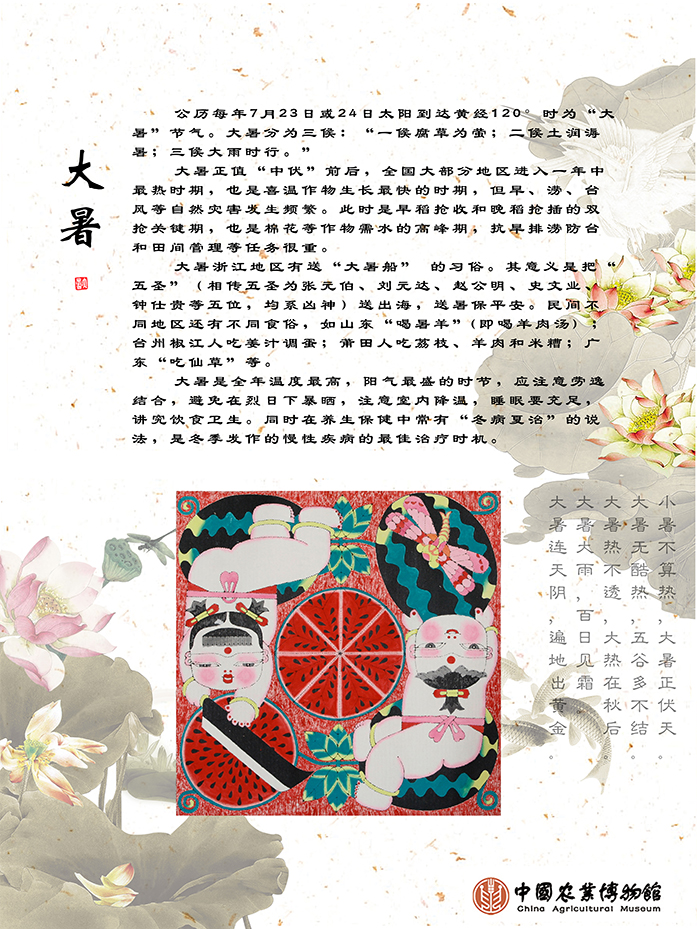 大暑
公历每年7月23日或24日太阳到达黄经120°时为“大
暑”节气。大暑分为三候：“一候腐草为萤；二候土润溽
暑；三候大雨时行。”
大暑正值“中伏”前后，全国大部分地区进入一年中
最热时期，也是喜温作物生长最快的时期，但旱、涝、台
风等自然灾害发生频繁。此时是早稻抢收和晚稻抢插的双
抢关键期，也是棉花等作物需水的高峰期，抗旱排涝防台
和田间管理等任务很重。
大暑浙江地区有送“大暑船” 的习俗。其意义是把“
五圣”（相传五圣为张元伯、刘元达、赵公明、史文业、
钟仕贵等五位，均系凶神）送出海，送暑保平安。民间不
同地区还有不同食俗，如山东“喝暑羊”(即喝羊肉汤)；
台州椒江人吃姜汁调蛋；莆田人吃荔枝、羊肉和米糟；广
东“吃仙草”等。
大暑是全年温度最高，阳气最盛的时节，应注意劳逸
结合，避免在烈日下暴晒，注意室内降温，睡眠要充足，
讲究饮食卫生。同时在养生保健中常有“冬病夏治”的说
法，是冬季发作的慢性疾病的最佳治疗时机。
小暑不算热，大暑正伏天。
大暑无酷热，五谷多不结。
大暑热不透，大热在秋后。
大暑大雨，百日见霜。
大暑连天阴，遍地出黄金。
中國农业博物館
China Agricultural Museum